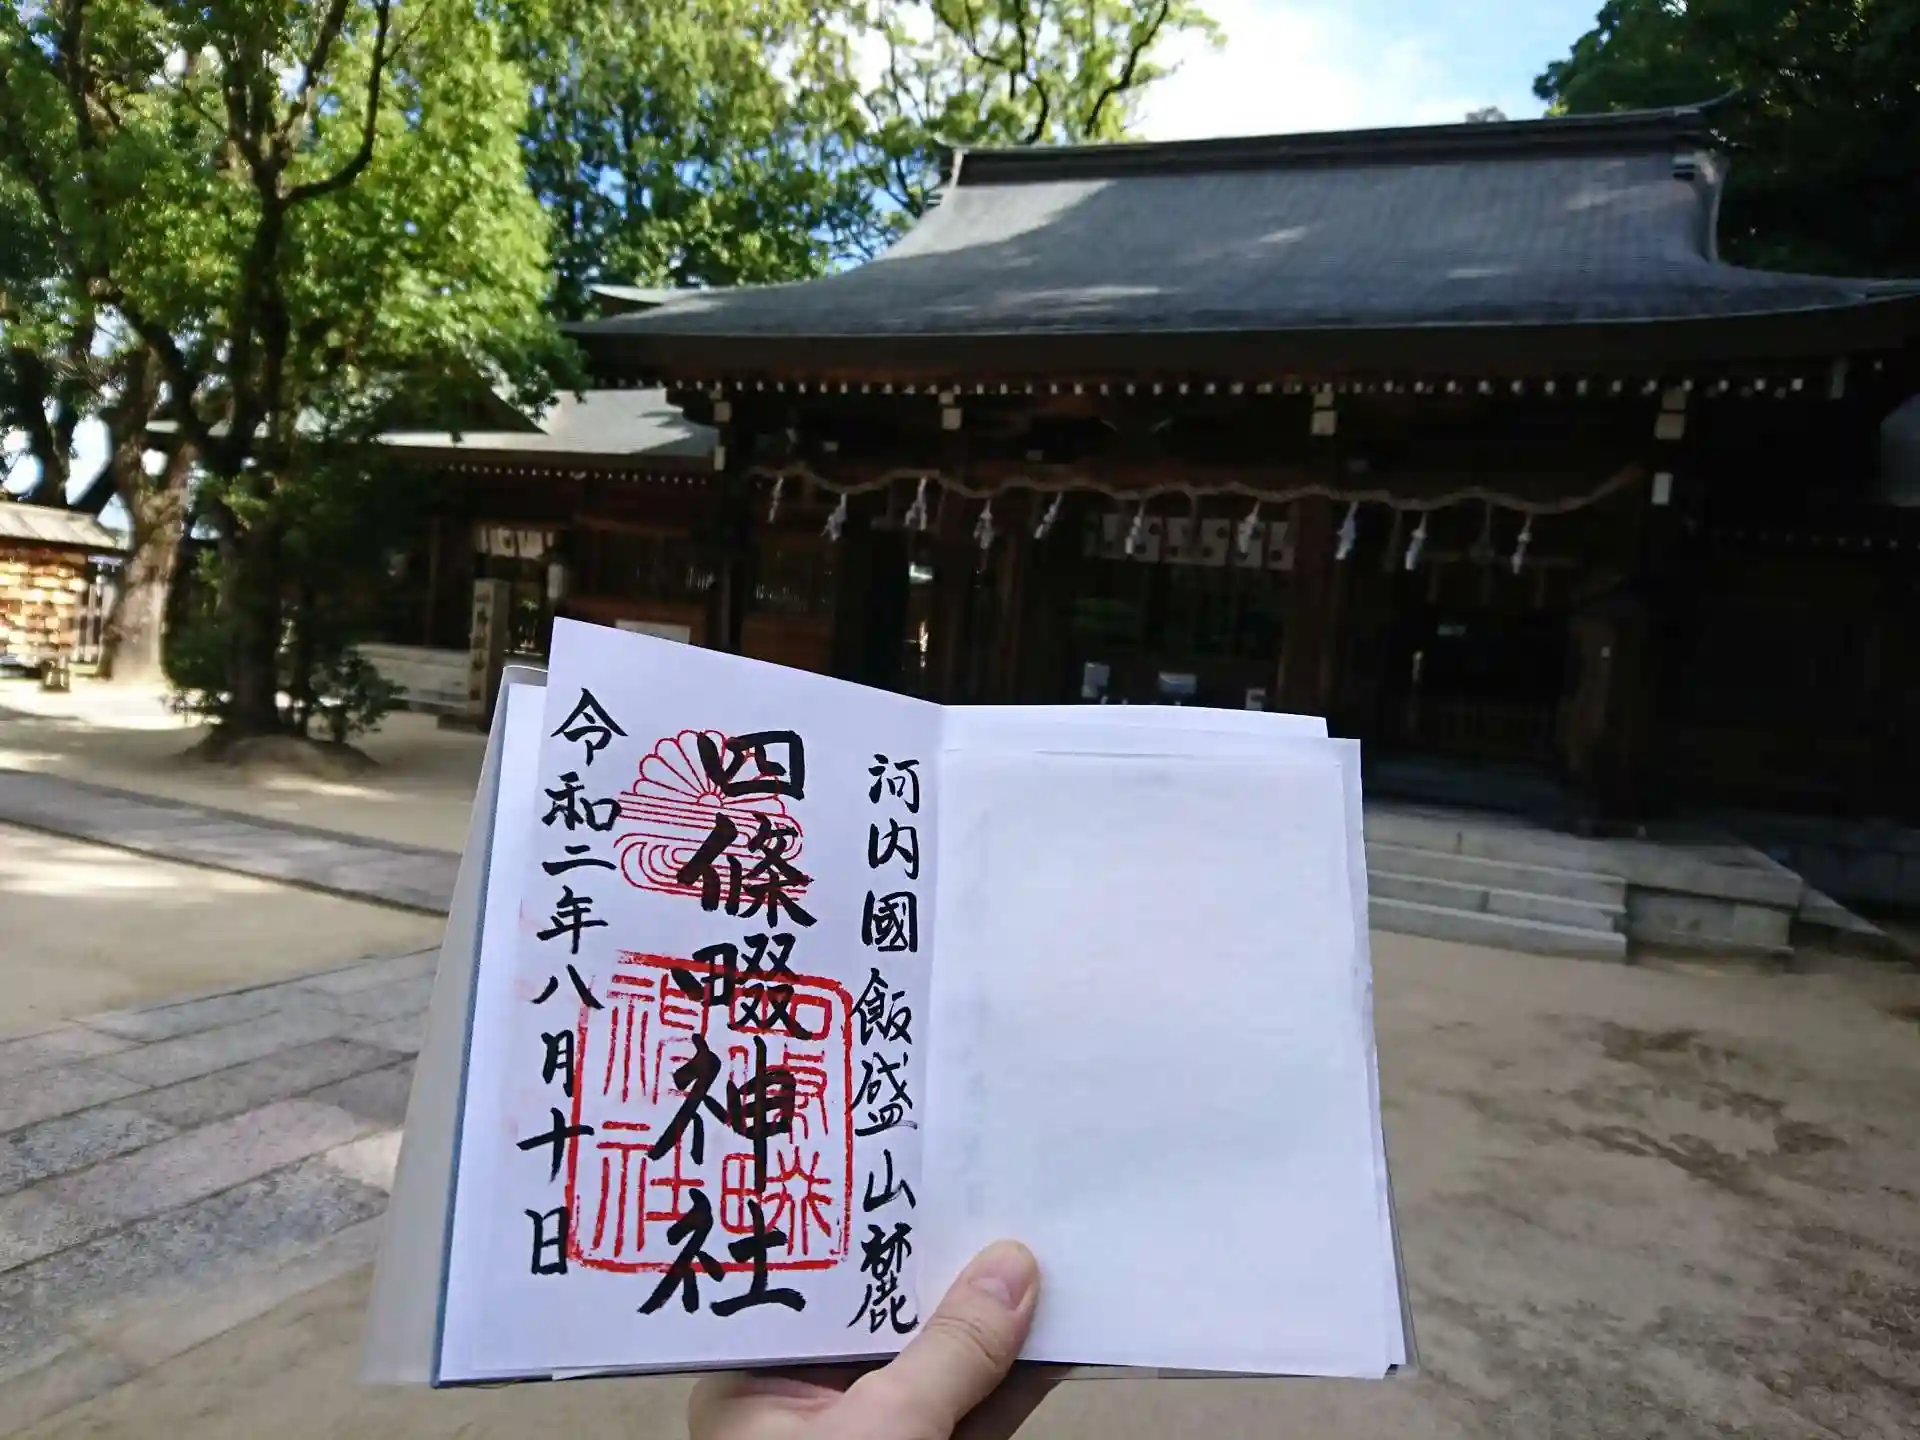 河内國飯盛山麓
四條畷神社
令和二年八月十日